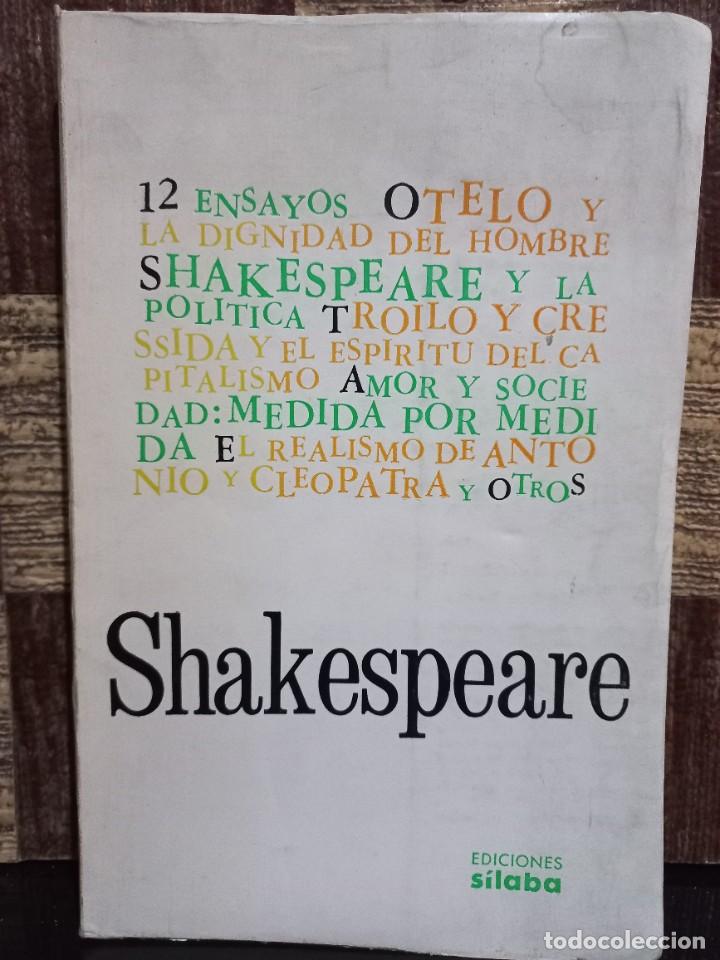 12 ENSAYOS OTELO Y
LA DIGNIDAD DEL HOMBRE
SHAKESPEARE Y LA
POLITICA TROILO Y CRE
SSIDA Y EL ESPIRITU DEL CA
PITALISMO AMOR Y SOCIE
DAD: MEDIDA POR MEDI
DA EL REALISMO DE ANTO
NIO Y CLEOPATRA Y OTROS
Shakespeare
EDICIONES
sílaba
todocoleccion